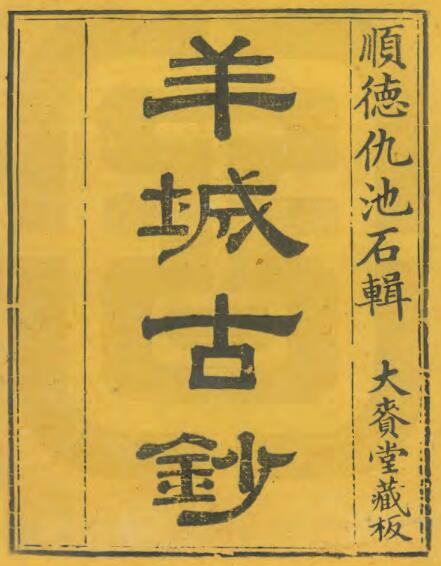 順徳仇池石輯 大賚堂藏板
羊城古鈔